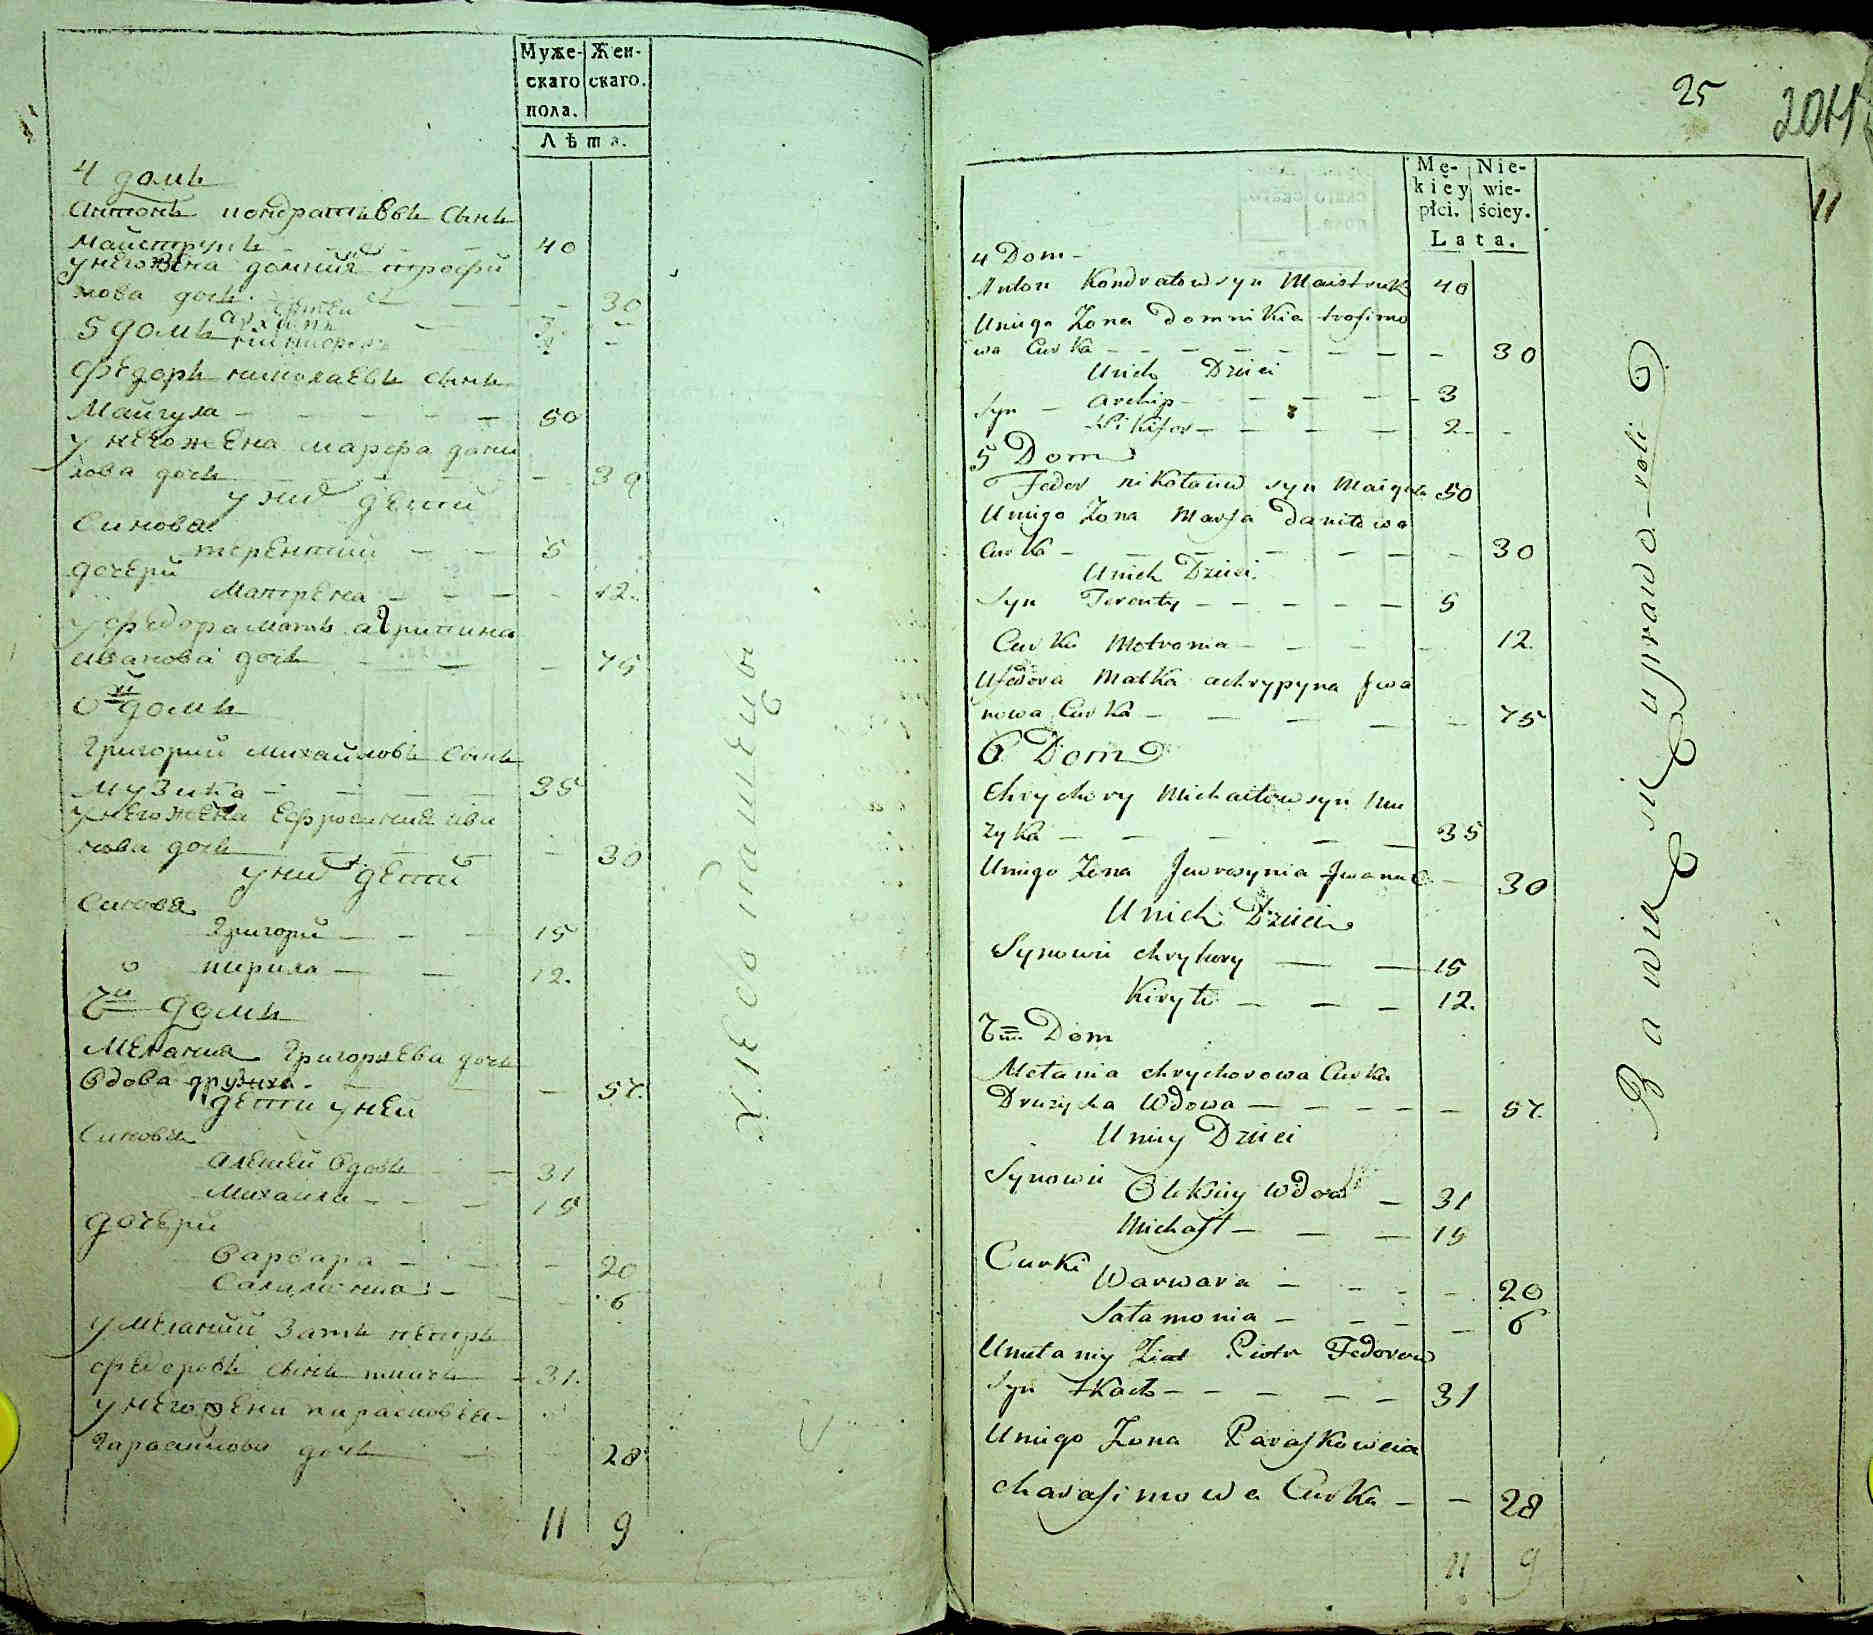 Муже-
скаго
пола.
Жен-
скаго.
Лѣта.
4 домъ
Антонъ кондратьевъ сынъ
майструкъ — — — 40
у него жена домния трофи
мова дочь — — — 30
дети
архипъ — 3
никифоръ — 2
5 домъ
Федоръ николаевъ сынъ
Майгула — — — — 50
у него жена марфа дани
лова дочь — — — 39
у них дети
Синовя
терентий — — 5
дочери
Матрена — — — 12.
у федора мать агрипина
иванова дочь — — — 75
6й домъ
Григорий михайловъ сынъ
музика — — — — 35
у него жена Ефросиния ива
нова дочь — — — 30
у них дети
Синовя
Григори — — — 15
кирила — — 12.
7й домъ
Мелания Григорьева дочь
вдова дружиха — — 57.
дети у ней
Синовя
Алексей вдовъ — 31
Михаила — — — 15
дочери
Варвара — — — 20
Саламония — — — 6
у мелании зать петръ
федоровъ синъ ткачъ — 31.
у него жена параскович
Гарасимова дочь — 28
11 9
хлебопашецы
25
204
11
Mę-
kiéy
płci.
Nie-
wie-
ściey.
Lata.
4 Dom —
Anton Kondratow syn Maistruk 40
Uniego Zona domnikia trofimo
wa Curka — — — — — — — 30
Unich Dzieci
Syn — Archip — — — — — 3
Nikifor — — — — 2
5 Dom
Fedor nikołaiw syn Maigula 50
Uniego Zona Marfa Daniłowa
Curka — — — — — — 30
Unich Dzieci
Syn Terenty — — — — — 5
Curka Motronia — — — — 12.
Ufedora Matka achrypyna Jwa
nowa Curka — — — — — 75
6 Dom
Chrychory Michaiłow syn Mu
zyka — — — — — 35
Uniego Zona Jewrosynia Jwanuc — 30
Unich Dzieci
Synowie chryhory — — 15
Kiryło — — — 12.
7m Dom
Mełania chrychorowa Curka
Druzycha Wdowa — — — — — 57.
Uniey Dzieci
Synowie Oleksiy Wdow — 31
Michajł — — — 15
Curki Warwara — — — — 20
Sałamonia — — — — 6
Umełaniy Ziat Piotr Fedorow
Syn tkacz — — — — — 31
Uniego Zona Paraskoweia
charasimowa Curka — — 28
11 9
Bawią się uprawą roli